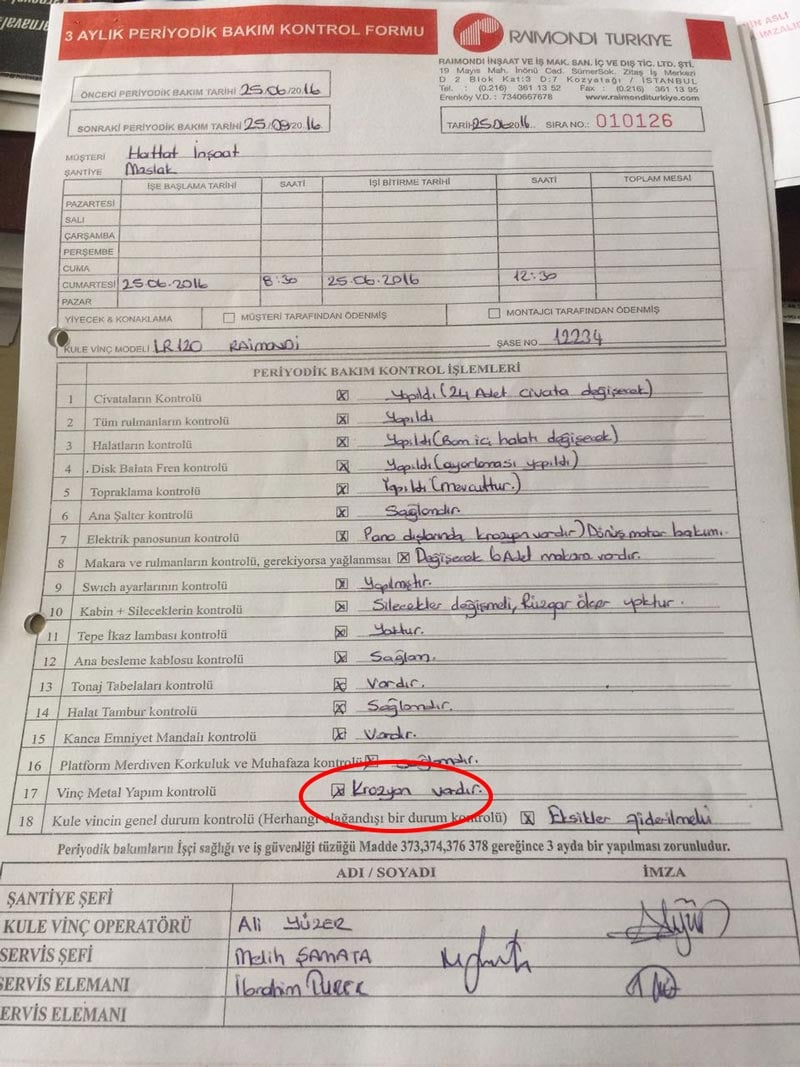 3 AYLIK PERİYODİK BAKIM KONTROL FORMU
RAIMONDI TURKIYE
RAIMONDI İNŞAAT VE İŞ MAK. SAN. İÇ VE DIŞ TİC. LTD. ŞTİ.
19 Mayıs Mah. İnönü Cad. SümerSok. Zitaş İş Merkezi
D 2 Blok Kat:3 D:7 Kozyatağı / İSTANBUL
Tel. : (0.216) 361 13 52 Fax : (0.216) 361 13 95
Erenköy V.D. : 7340667678 www.raimonditurkiye.com
ÖNCEKİ PERİYODİK BAKIM TARİHİ 25.06/2016
SONRAKİ PERİYODİK BAKIM TARİHİ 25/09/2016
TARİH 25.06.2016 SIRA NO.: 010126
MÜŞTERİ Hattat İnşaat
ŞANTİYE Maslak
İŞE BAŞLAMA TARİHİ SAATİ İŞİ BİTİRME TARİHİ SAATİ TOPLAM MESAİ
PAZARTESİ
SALI
ÇARŞAMBA
PERŞEMBE
CUMA
CUMARTESİ 25.06.2016 8:30 25.06.2016 12:30
PAZAR
YİYECEK & KONAKLAMA MÜŞTERİ TARAFINDAN ÖDENMİŞ MONTAJCI TARAFINDAN ÖDENMİŞ
KULE VİNÇ MODELİ LR120 RAIMONDI ŞASE NO 12234
PERİYODİK BAKIM KONTROL İŞLEMLERİ
1 Civataların Kontrolü X Yapıldı (24 Adet civata değişecek)
2 Tüm rulmanların kontrolü X Yapıldı
3 Halatların kontrolü X Yapıldı (Bom içi halatı değişecek)
4 . Disk Balata Fren kontrolü X Yapıldı (ayarlaması yapıldı)
5 Topraklama kontrolü X Yapıldı (mevcuttur.)
6 Ana Şalter kontrolü X Sağlamdır
7 Elektrik panosunun kontrolü X Pano dışlarında krozyon vardır) Dönüş motor bakımı.
8 Makara ve rulmanların kontrolü, gerekiyorsa yağlanması X Değişecek 6 Adet makara vardır.
9 Swıch ayarlarının kontrolü X Yapılmıştır.
10 Kabin + Sileceklerin kontrolü X Silecekler değişmeli, Rüzgar ölçer yoktur.
11 Tepe İkaz lambası kontrolü X Yoktur.
12 Ana besleme kablosu kontrolü X Sağlam.
13 Tonaj Tabelaları kontrolü X Vardır.
14 Halat Tambur kontrolü X Sağlamdır.
15 Kanca Emniyet Mandalı kontrolü X Vardır.
16 Platform Merdiven Korkuluk ve Muhafaza kontrolü X Sağlamdır.
17 Vinç Metal Yapım kontrolü X Krozyon vardır.
18 Kule vincin genel durum kontrolü (Herhangi olağandışı bir durum kontrolü) X Eksikler giderilmeli
Periyodik bakımların İşçi sağlığı ve iş güvenliği tüzüğü Madde 373,374,376 378 gereğince 3 ayda bir yapılması zorunludur.
ADI / SOYADI İMZA
ŞANTİYE ŞEFİ
KULE VİNÇ OPERATÖRÜ Ali YÜZER
SERVİS ŞEFİ Melih ŞAMATA
SERVİS ELEMANI İbrahim
SERVİS ELEMANI